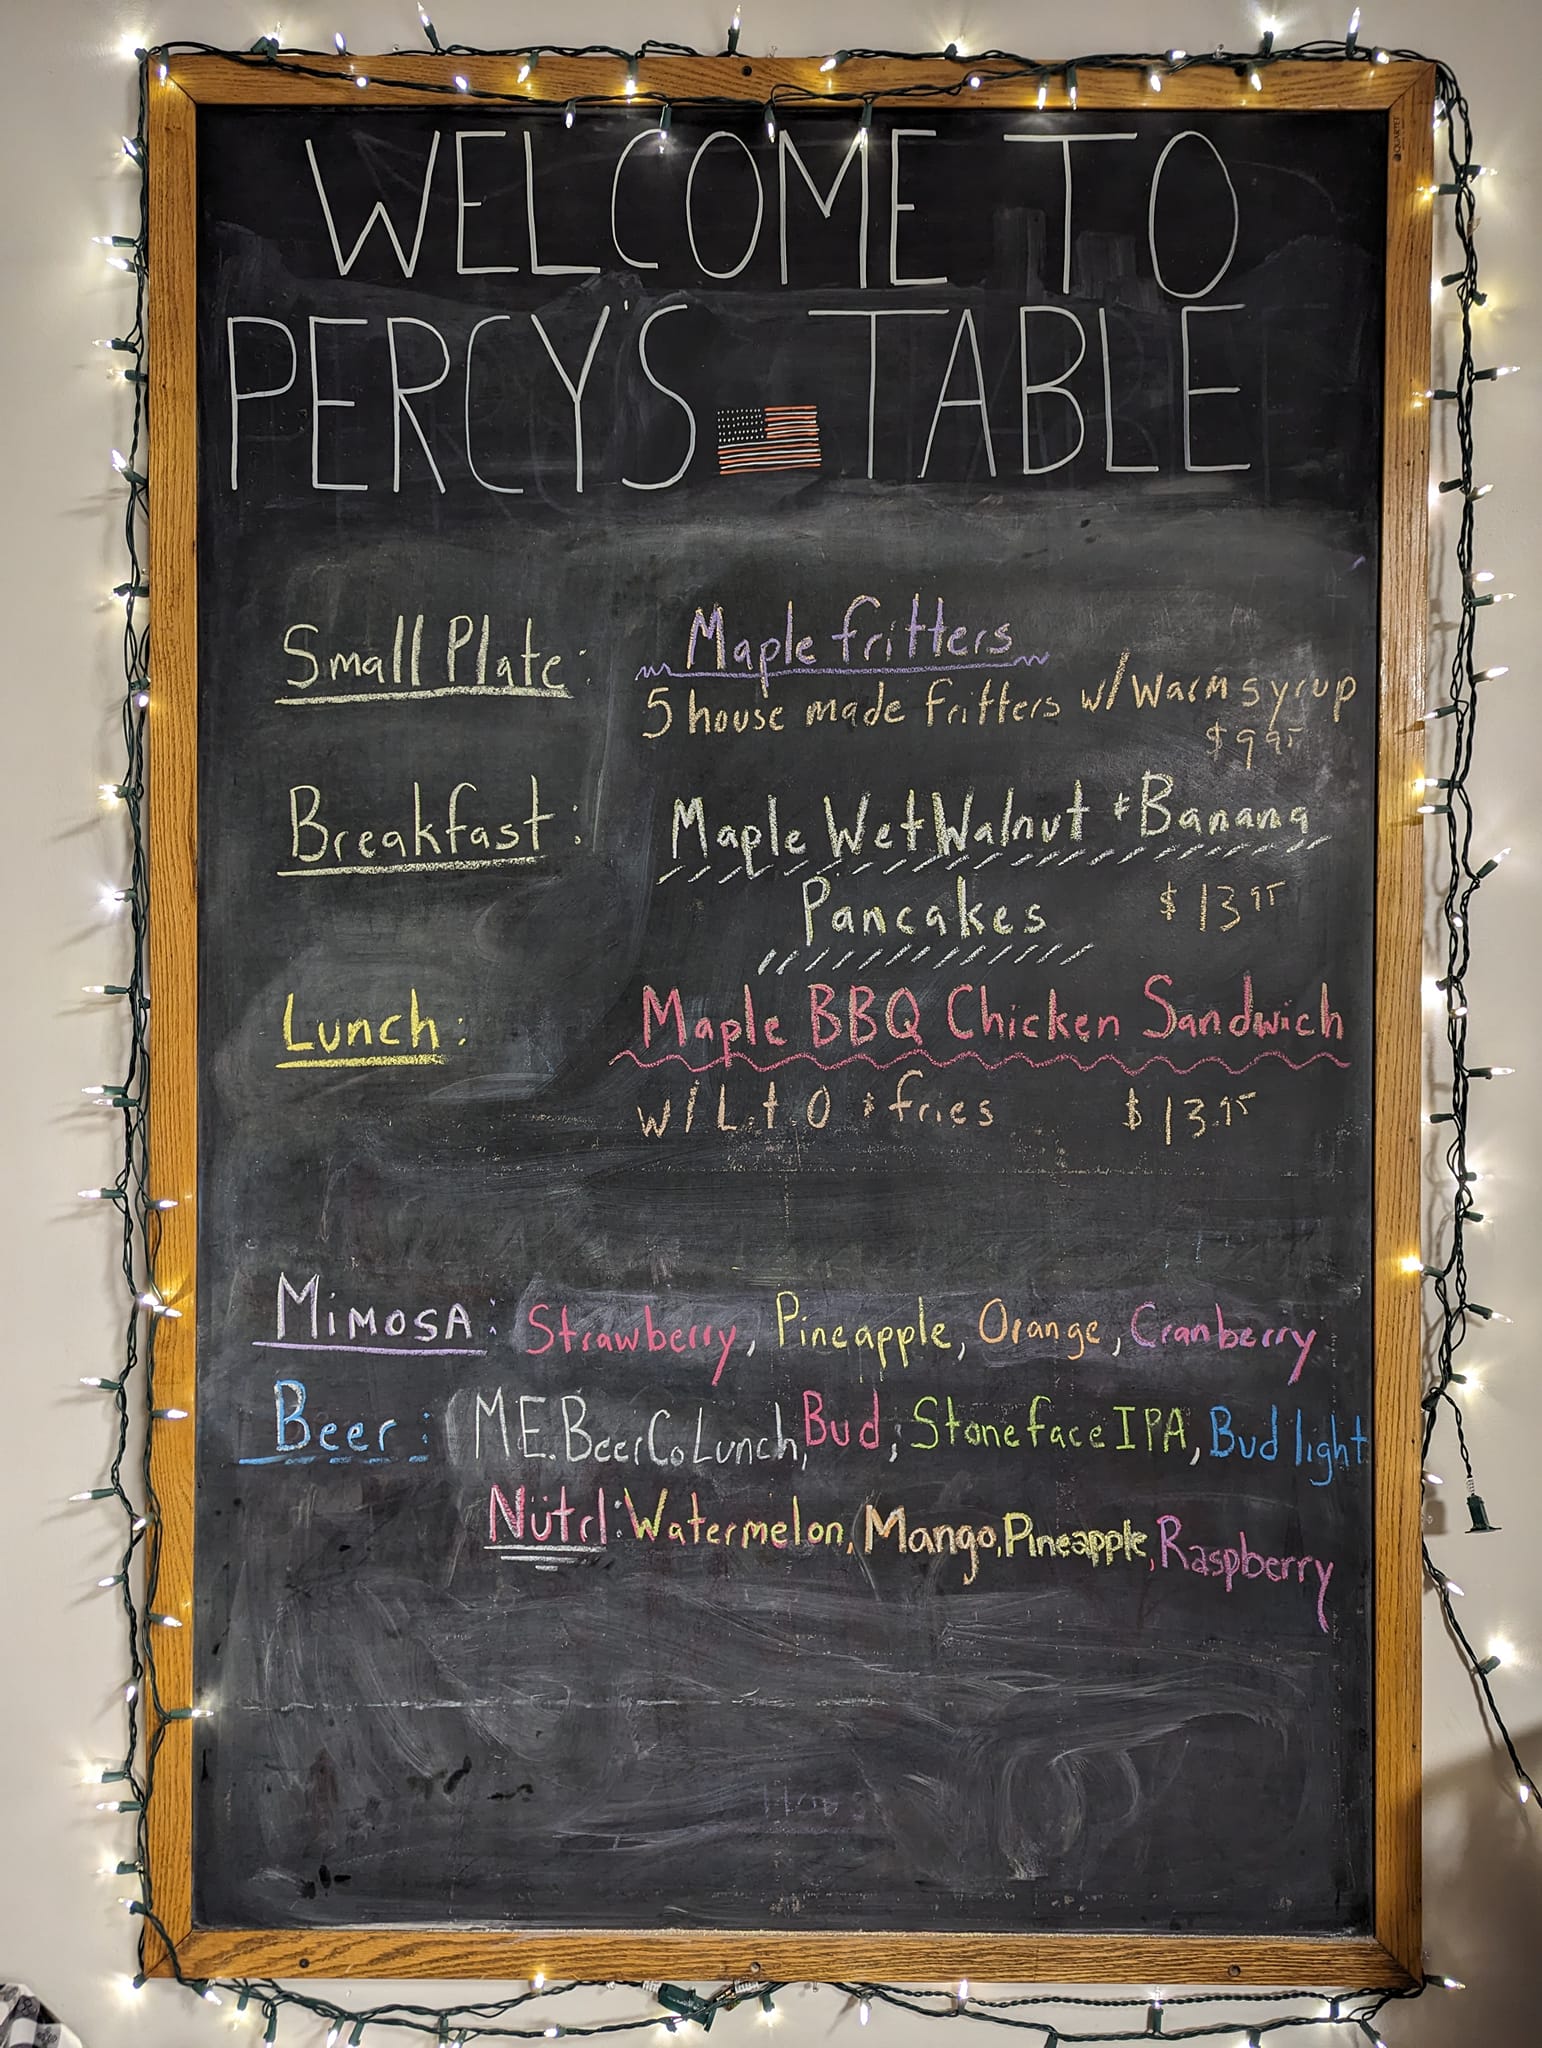 WELCOME TO
PERCY'S TABLE
QUARTET
Small Plate: Maple fritters
5 house made fritters w/ warm syrup
$9.95
Breakfast: Maple Wet Walnut + Banana
Pancakes $13.95
Lunch: Maple BBQ Chicken Sandwich
w/ L.t O + fries $13.95
MiMOSA: Strawberry, Pineapple, Orange, Cranberry
Beer: M.E. Beer Co Lunch, Bud, Stoneface IPA, Bud light
Nütrl: Watermelon, Mango, Pineapple, Raspberry